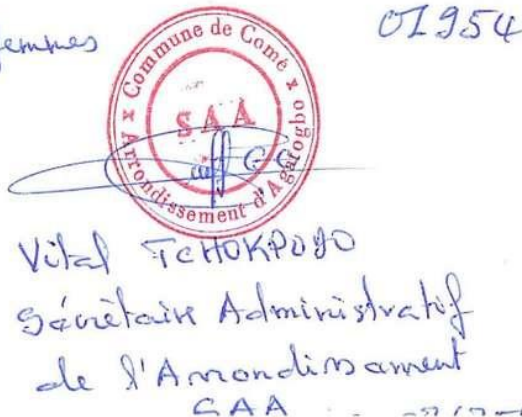 femmes
01954
x Commune de Comé x
Arrondissement d'Agatogbo
SAA
Vital TCHOKPODO
Sécrètaire Administratif
de l'Arrondissament
SAA